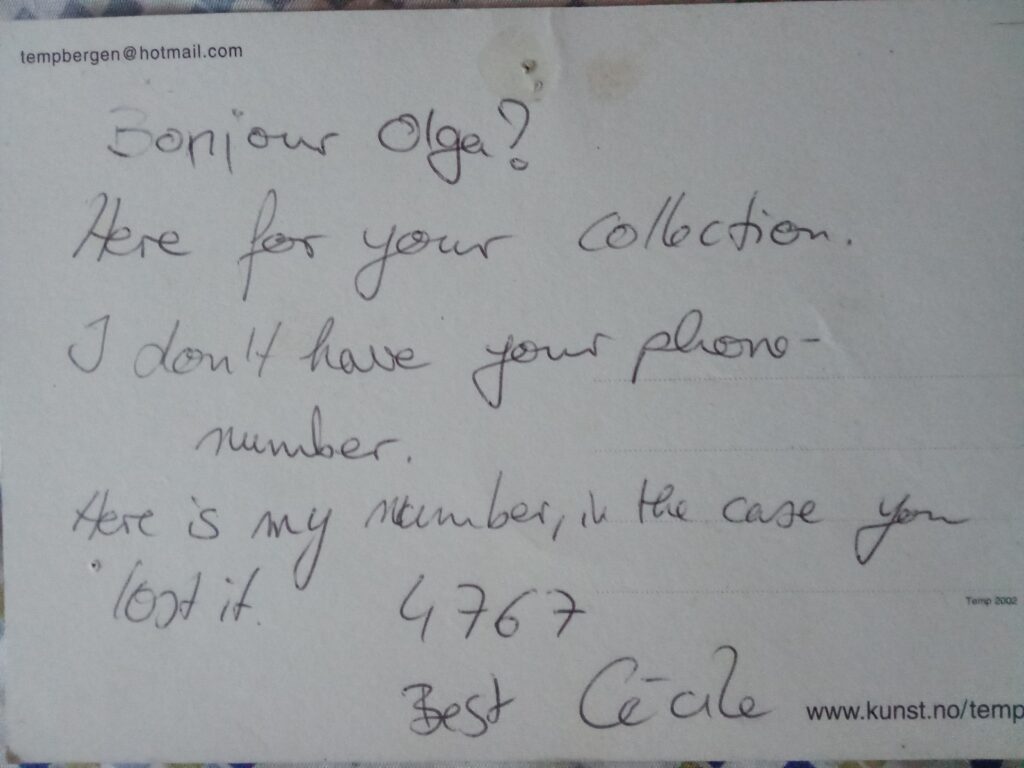 tempbergen@hotmail.com
Bonjour Olga?
Here for your collection.
I don't have your phone-
number.
Here is my number, in the case you
lost it. 4767
Temp 2002
Best Cécile
www.kunst.no/temp